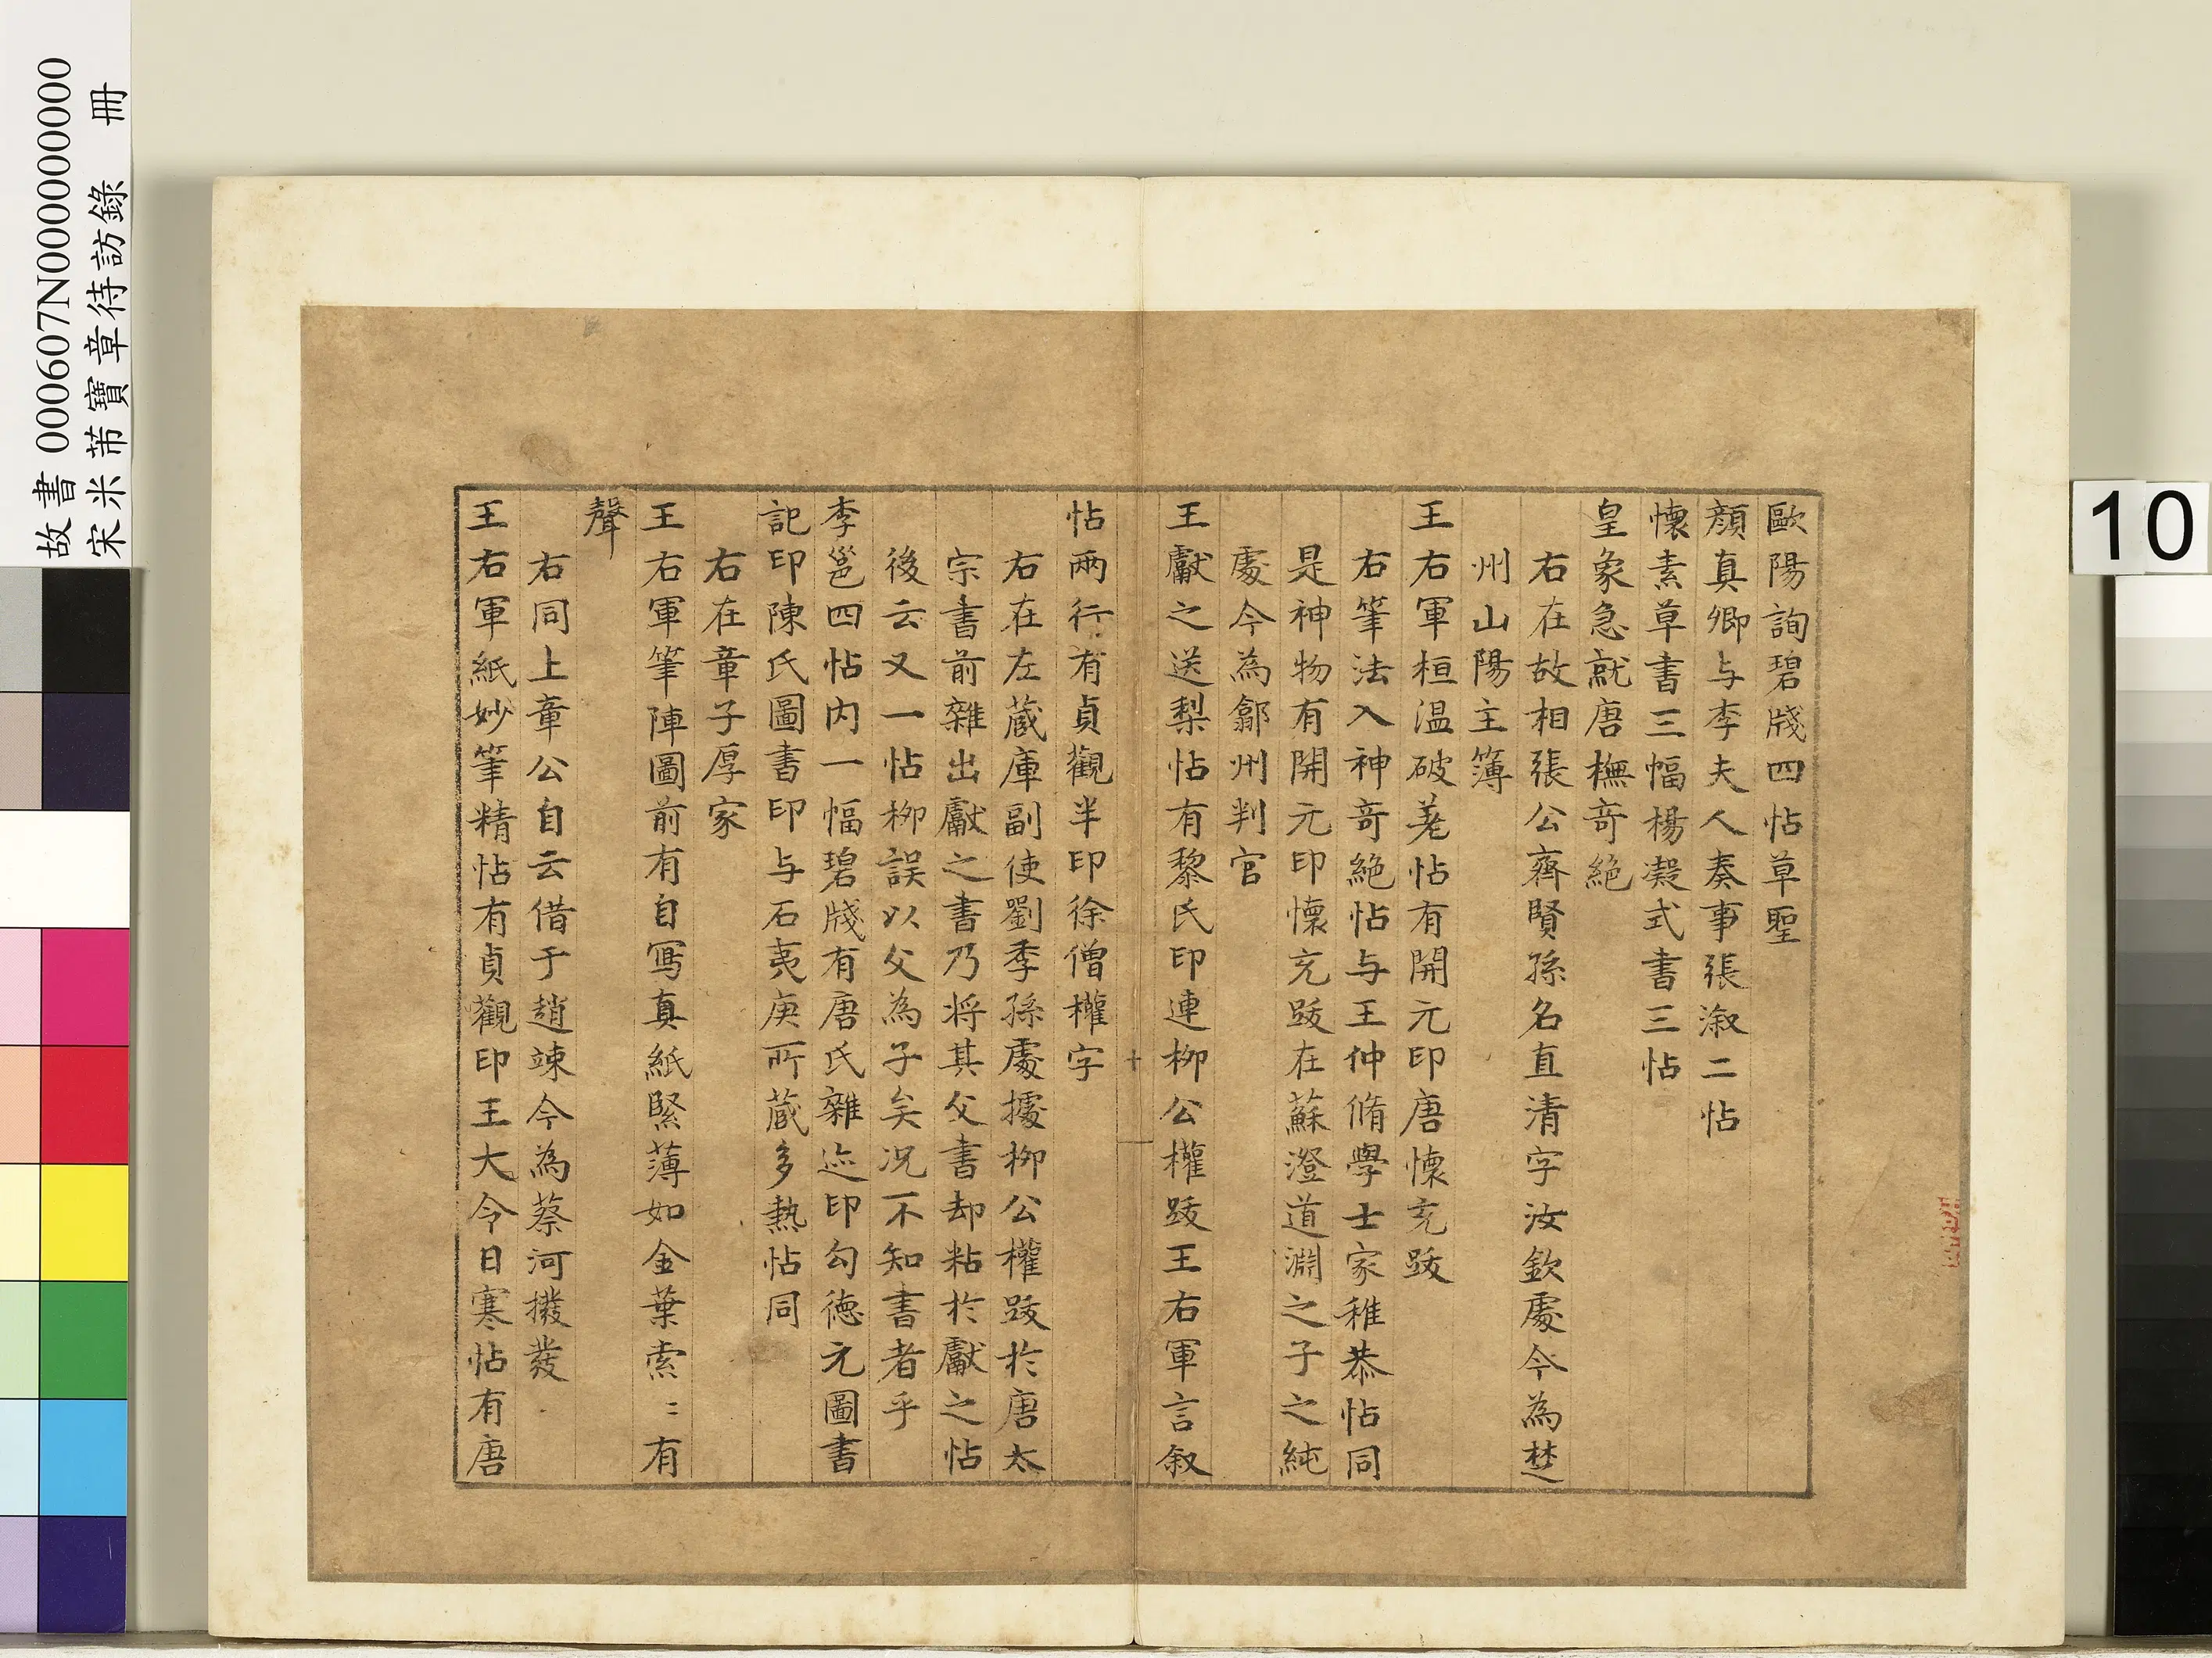 歐陽詢碧牋四帖草聖
顔真卿与李夫人奏事張溆二帖
懷素草書三幅楊凝式書三帖
皇象急就唐橅竒絶
右在故相張公齊賢孫名直清字汝欽處今為楚
州山陽主簿
王右軍桓温破羗帖有開元印唐懷充跋
右筆法入神竒絶帖与王仲脩學士家稚恭帖同
是神物有開元印懷充跋在蘇澄道淵之子之純
處今為鄶州判官
王獻之送梨帖有黎氏印連栁公權跋王右軍言叙
十
帖兩行有貞觀半印徐僧權字
右在左藏庫副使劉季孫處據栁公權跋於唐太
宗書前雜出獻之書乃将其父書却粘於獻之帖
後云又一帖栁誤以父為子矣况不知書者乎
李邕四帖内一幅碧牋有唐氏雜迹印勾德元圖書
記印陳氏圖書印与石夷庚所藏多熱帖同
右在章子厚家
王右軍筆陣圖前有自寫真紙緊薄如金葉索〻有
聲
右同上章公自云借于趙竦今為蔡河撥發
王右軍紙妙筆精帖有貞觀印王大令日寒帖有唐
故書 000607N000000000
宋米芾寶章待訪錄 冊
10